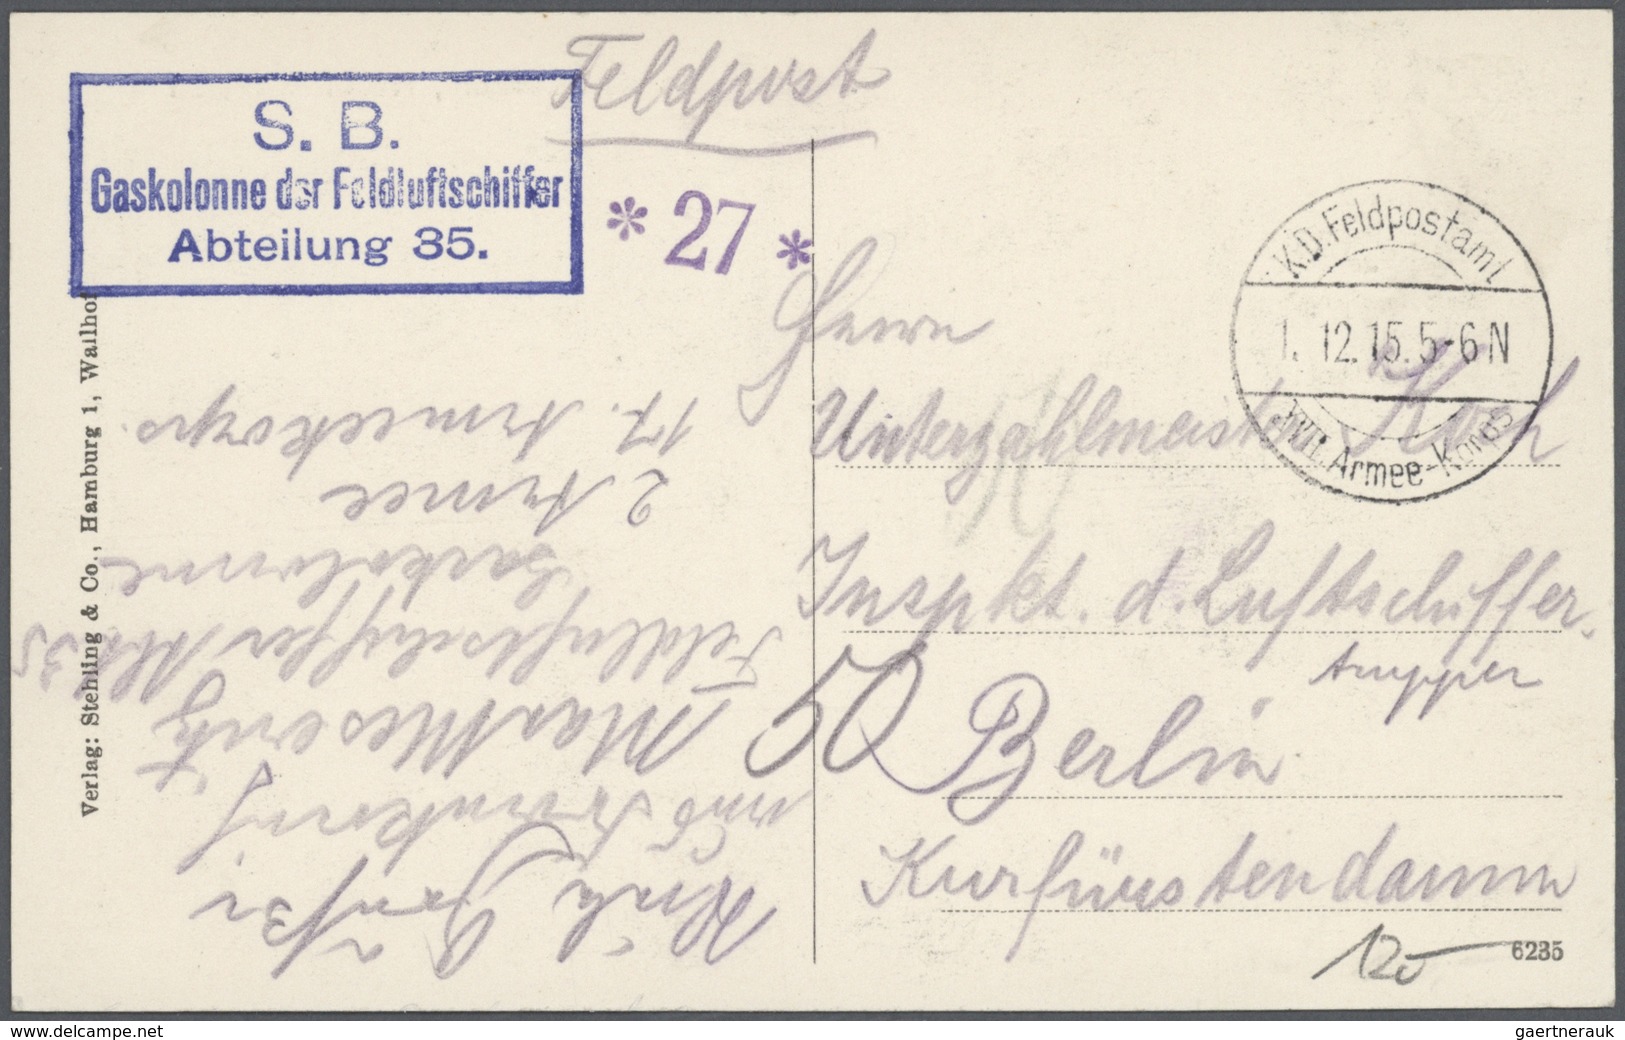 Feldpost
S. B.
Gaskolonne der Feldluftschiffer
Abteilung 35.
* 27 *
K.D. Feldpostamt
1. 12. 15. 5-6 N
XVII. Armee-Korps
Herrn
Unterzahlmeister Koch
Inspkt. d. Luftschiffer-
truppen
50
Berlin
Kurfürstendamm
120
6235
Verlag: Stehling & Co., Hamburg 1, Walhof
und
Max
Feldluftschiffer Abt. 35
Gaskolonne
2. Armee
17. Armeekorps.
delcampe.net
gaertnerauk